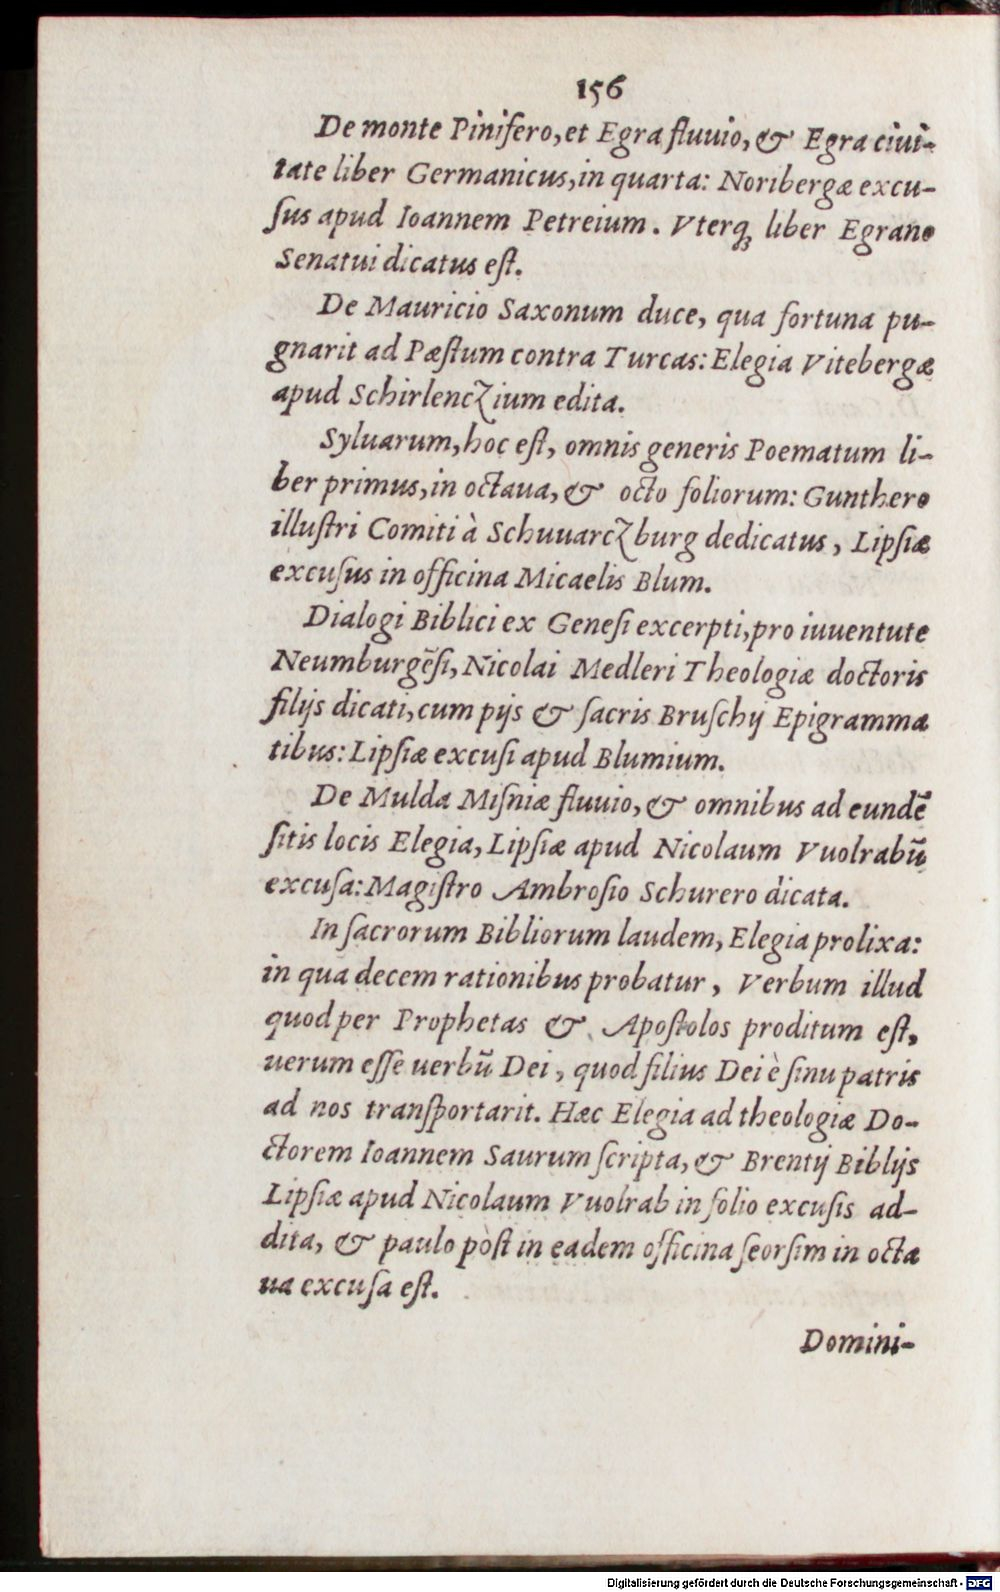 156
De monte Pinifero, et Egra fluuio, & Egra ciui-
tate liber Germanicus, in quarta: Noribergæ excu-
ſus apud Ioannem Petreium. Vterq; liber Egrano
Senatui dicatus eſt.
De Mauricio Saxonum duce, qua fortuna pu-
gnarit ad Pæſtum contra Turcas: Elegia Vitebergæ
apud Schirlenczium edita.
Syluarum, hoc eſt, omnis generis Poematum li-
ber primus, in octaua, & octo foliorum: Gunthero
illuſtri Comiti à Schuuarczburg dedicatus, Lipſiæ
excuſus in officina Micaelis Blum.
Dialogi Biblici ex Geneſi excerpti, pro iuuentute
Neumburgẽſi, Nicolai Medleri Theologiæ doctoris
filijs dicati, cum pijs & ſacris Bruſchij Epigramma
tibus: Lipſiæ excuſi apud Blumium.
De Mulda Miſniæ fluuio, & omnibus ad eundẽ
ſitis locis Elegia, Lipſiæ apud Nicolaum Vuolrabũ
excuſa: Magiſtro Ambroſio Schurero dicata.
In ſacrorum Bibliorum laudem, Elegia prolixa:
in qua decem rationibus probatur, Verbum illud
quod per Prophetas & Apoſtolos proditum eſt,
uerum eſſe uerbũ Dei, quod filius Dei è ſinu patris
ad nos tranſportarit. Hæc Elegia ad theologiæ Do-
ctorem Ioannem Saurum ſcripta, & Brentij Biblijs
Lipſiæ apud Nicolaum Vuolrab in folio excuſis ad-
dita, & paulo pòſt in eadem officina ſeorſim in octa
ua excuſa eſt.
Domini-
Digitalisierung gefördert durch die Deutsche Forschungsgemeinschaft - DFG